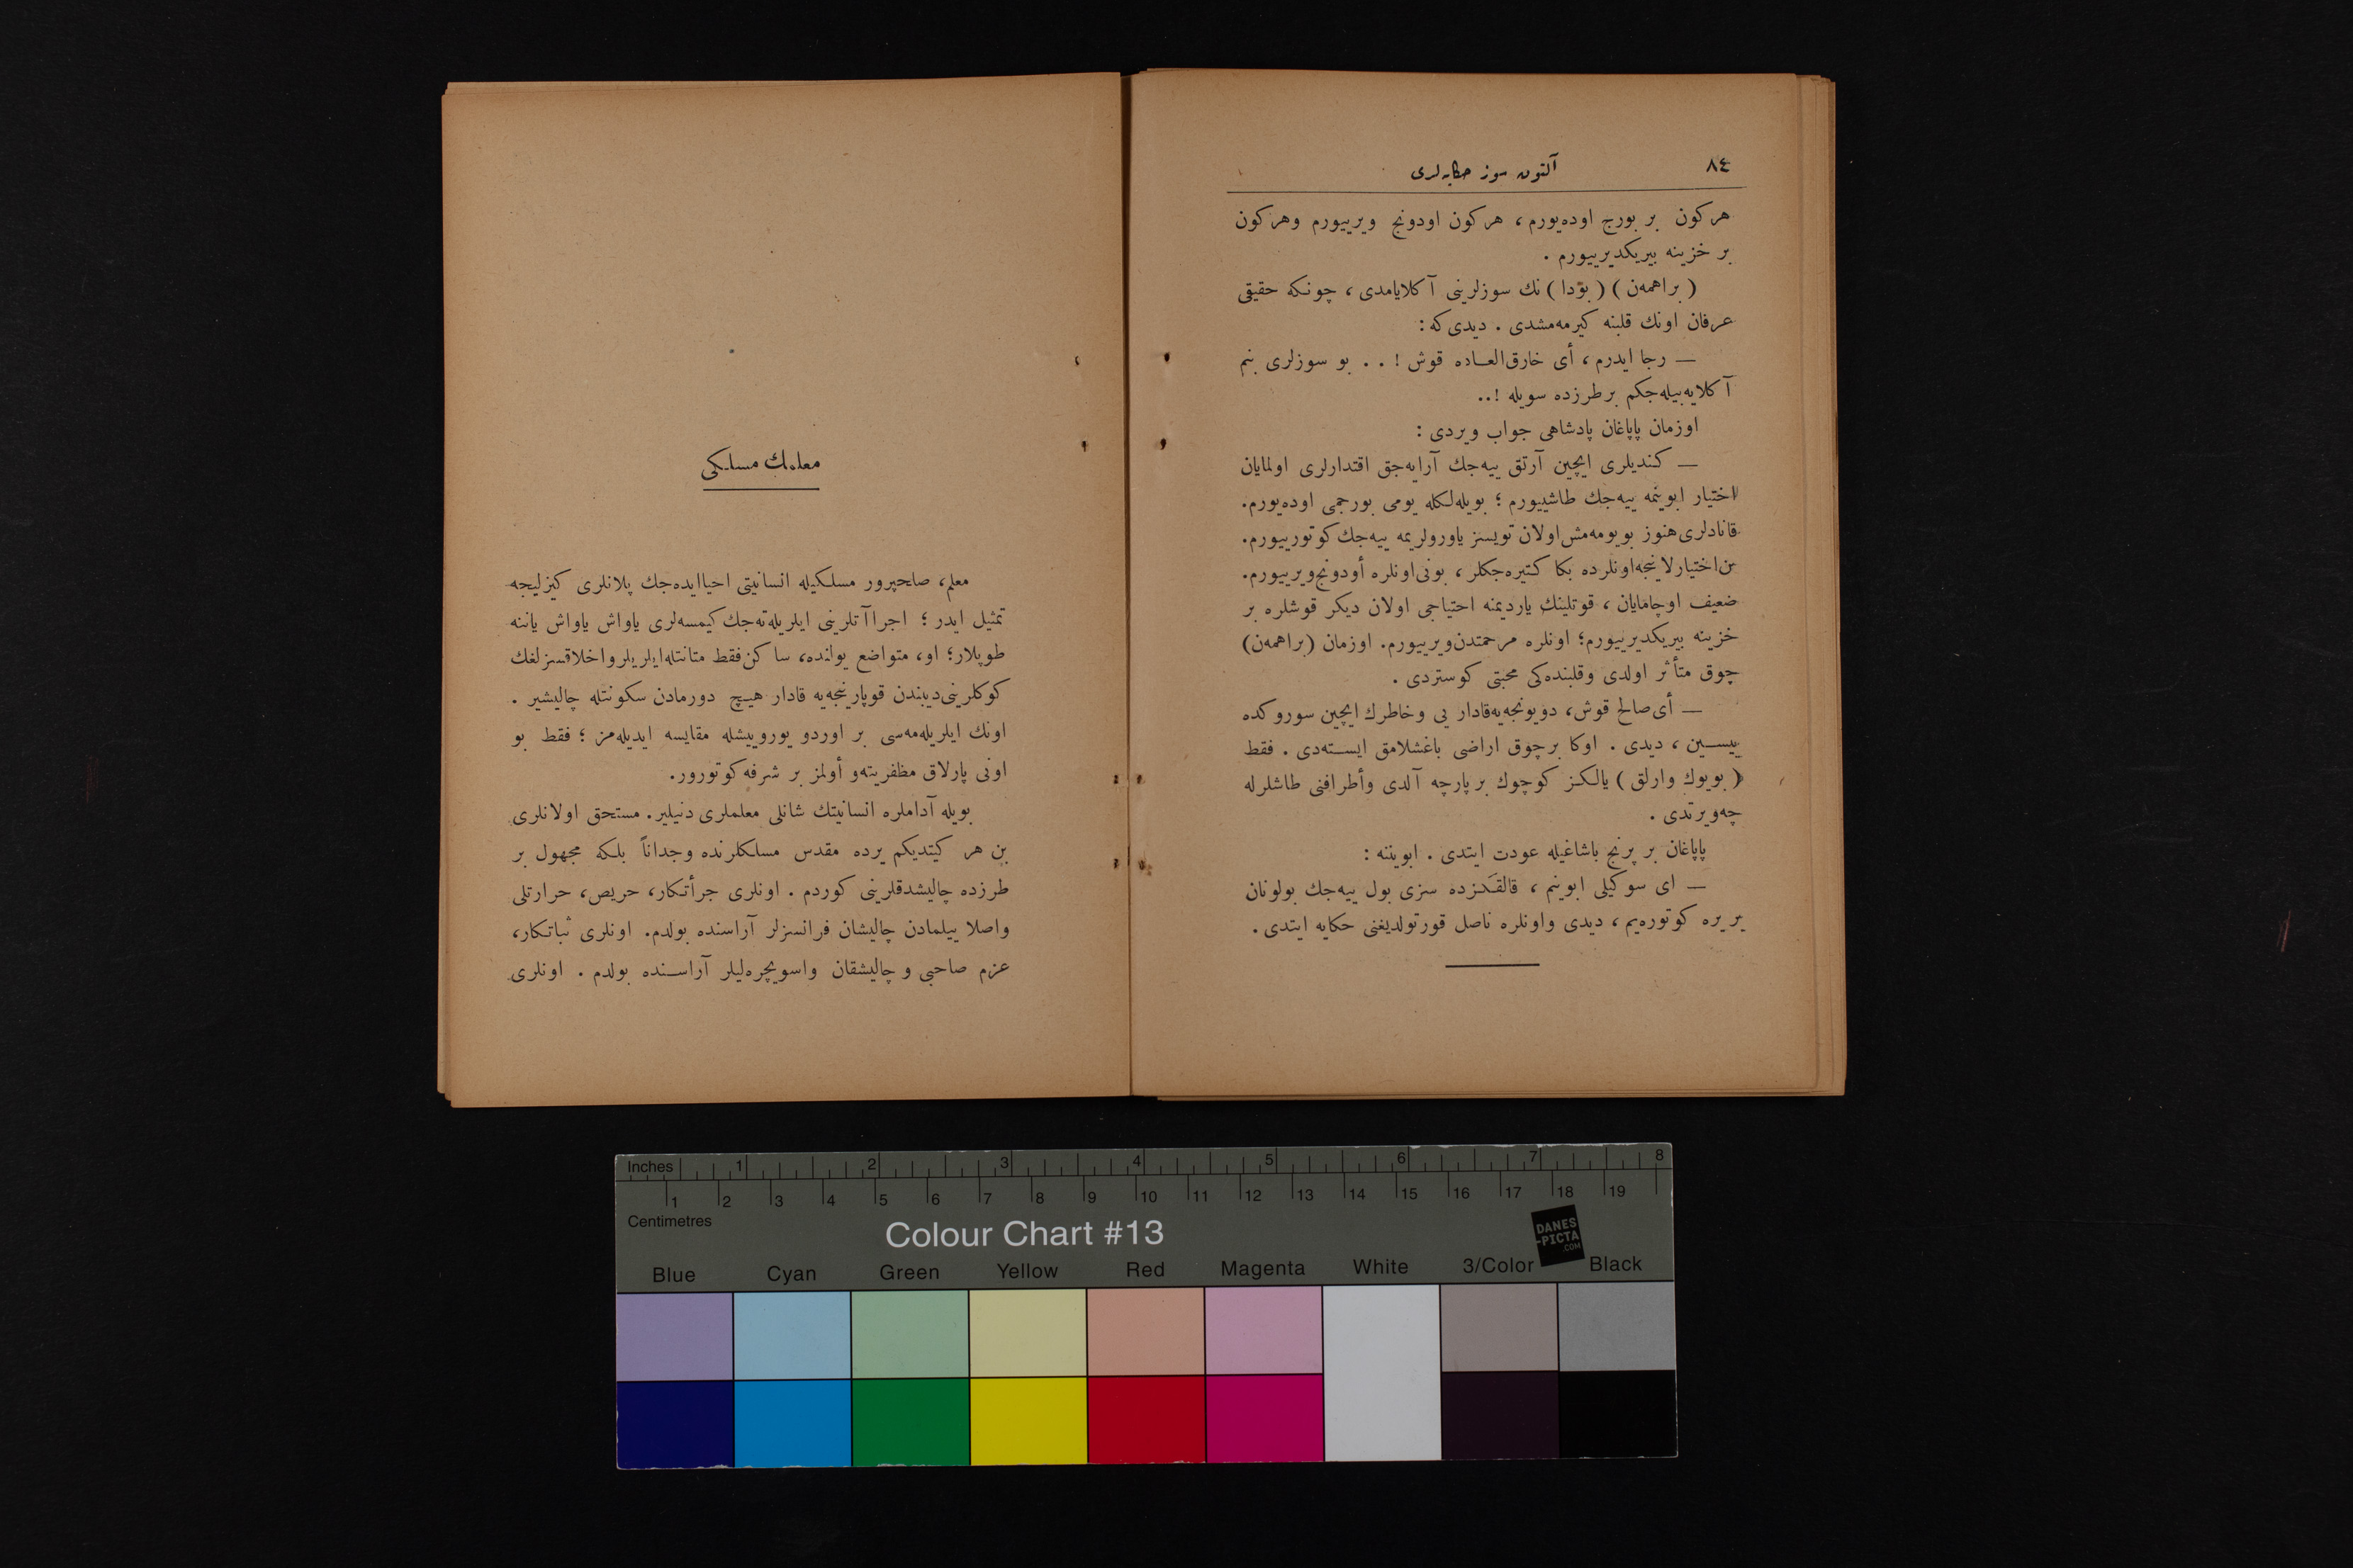 ٨٤
آلتون سوز حكايه‌لری
هركون بر بورج اوده‌يورم ، هركون اودونج ويرييورم وهركون
بر خزينه بيريكديرييورم .
( براهمه‌ن ) ( بؤدا ) نك سوزلرينی آكلايامدی ، چونكه حقيقی
عرفان اونك قلبنه كيرمه‌مشدی . ديدی‌كه :
— رجا ايدرم ، أی خارق‌العاده قوش ! . . بو سوزلری بنم
آكلايه‌بيله‌جكم برطرزده سويله !..
اوزمان پاپاغان پادشاهی جواب ويردی :
— كنديلری ايچين آرتق ييه‌جك آرايه‌جق اقتدارلری اولمايان
اختيار ابوينمه ييه‌جك طاشييورم ؛ بويله‌لكله يومی بورجمی اوده‌يورم.
قانادلری هنوز بويومه‌مش اولان تويسز ياورولريمه ييه‌جك كوتورييورم.
بن‌اختيارلاينجه‌اونلرده بكا كتيره‌جكلر ، بونی‌اونلره أودونج‌ويرييورم.
ضعيف اوچامايان ، قوتلينك يارديمنه احتياجی اولان ديكر قوشلره بر
خزينه بيريكديرييورم؛ اونلره مرحمتدن‌ويرييورم. اوزمان (براهمه‌ن)
چوق متأثر اولدی وقلبنده‌كی محبتی كوستردی .
— أی‌صالح قوش، دويونجه‌يه‌قادار يی وخاطرك ايچين سوروكده
ييسين ، ديدی . اوكا برچوق اراضی باغشلامق ايسته‌دی . فقط
( بويوك وارلق ) يالكز كوچوك بر پارچه آلدی وأطرافنی طاشلرله
چه‌ويرتدی .
پاپاغان بر پرنج باشاغيله عودت ايتدی . ابويننه :
— ای سوكيلی ابوينم ، قالقكزده سزی بول ييه‌جك بولونان
بر يره كوتوره‌يم ، ديدی واونلره ناصل قورتولديغنی حكايه ايتدی .
معلمك مسلكی
معلم، صلحپرور مسلكيله انسانيتی احياايده‌جك پلانلری كيزليجه
تمثيل ايدر ؛ اجراآتلرينی ايلريله‌ته‌جك كيمسه‌لری ياواش ياواش ياننه
طوپلار؛ او، متواضع يولنده، ساكن‌فقط متانتله‌ايلريلرواخلاقسزلغك
كوكلرينی‌ديبندن قوپارينجه‌يه قادار هيچ دورمادن سكونتله چاليشير .
اونك ايلريله‌مه‌سی بر اوردو يوروييشله مقايسه ايديله‌مز ؛ فقط بو
اونی پارلاق مظفريته‌و أولمز بر شرفه‌كوتورور.
بويله آداملره انسانيتك شانلی معلملری دنيلير. مستحق اولانلری
بن هر كيتديكم يرده مقدس مسلكلرنده وجداناً بلكه مجهول بر
طرزده چاليشدقلرينی كوردم . اونلری جرأتكار، حريص، حرارتلی
واصلا ييلمادن چاليشان فرانسزلر آراسنده بولدم. اونلری ثباتكار،
عزم صاحبی و چاليشقان واسويچره‌ليلر آراسنده بولدم . اونلری
Inches 1 2 3 4 5 6 7 8
1 2 3 4 5 6 7 8 9 10 11 12 13 14 15 16 17 18 19
Centimetres
Colour Chart #13
DANES
-PICTA
.COM
Blue Cyan Green Yellow Red Magenta White 3/Color Black